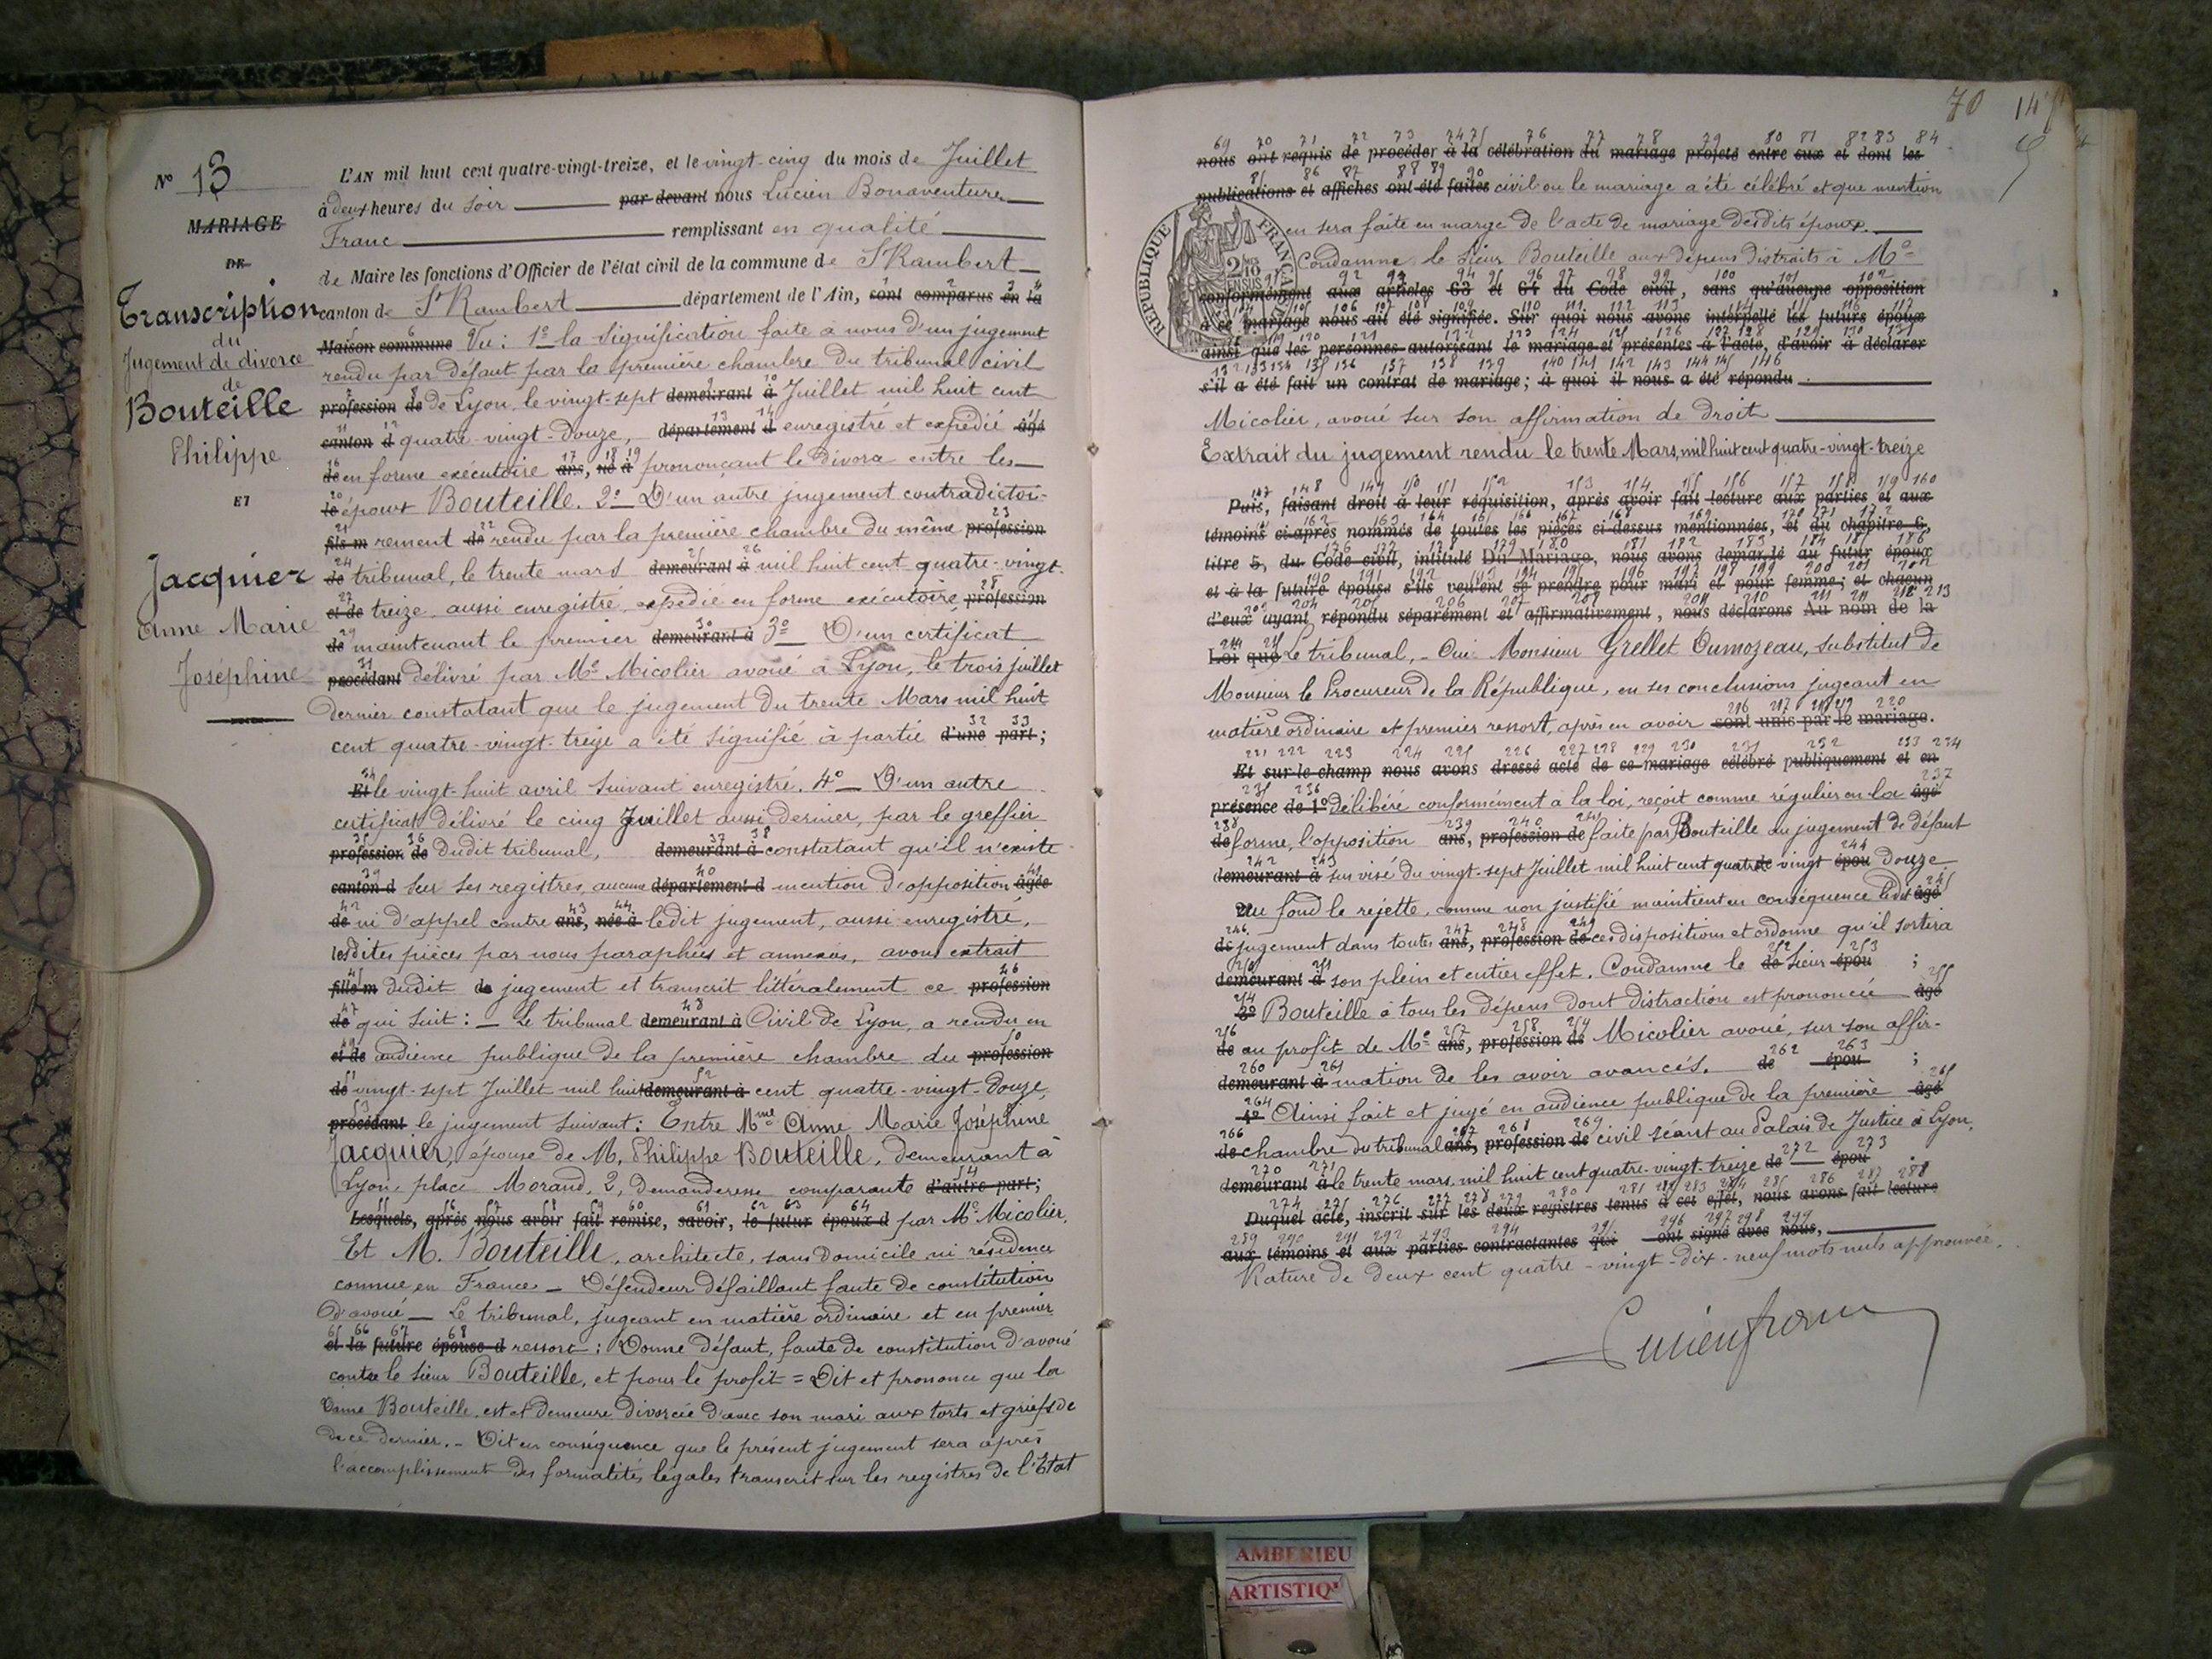 N° 13
MARIAGE
DE
Transcription
du
Jugement de divorce
de
Bouteille
Philippe
ET
Jacquier
Anne Marie
Joséphine
L'AN mil huit cent quatre-vingt-treize, et le vingt-cinq du mois de Juillet
à deux heures du soir par devant nous Lucien Bonaventure
Franc remplissant en qualité
de Maire les fonctions d'Officier de l'état civil de la commune de St Rambert
canton de St Rambert département de l'Ain, sont comparus en la
Maison commune Vu: 1° la signification faite à nous d'un jugement
rendu par défaut par la première chambre du tribunal civil
profession de de Lyon, le vingt-sept demeurant à Juillet mil huit cent
canton d quatre-vingt-douze, département d enregistré et expédié âgé
de en forme exécutoire ans, né à prononçant le divorce entre les
le époux Bouteille. 2° D'un autre jugement contradictoi-
fils m rement de rendu par la première chambre du même profession
de tribunal, le trente mars demeurant à mil huit cent quatre-vingt-
et de treize, aussi enregistré, expédié en forme exécutoire, profession
de maintenant le premier demeurant à 3° D'un certificat
procédant délivré par Me Micolier avoué à Lyon, le trois juillet
dernier constatant que le jugement du trente Mars mil huit
cent quatre-vingt-treize a été signifié à partie d'une part;
Et le vingt-huit avril suivant enregistré. 4° D'un autre
certificat délivré le cinq Juillet aussi dernier, par le greffier
profession de dudit tribunal, demeurant à constatant qu'il n'existe
canton d sur ses registres aucune département d mention d'opposition âgée
de ni d'appel contre ans, née à ledit jugement, aussi enregistré,
lesdites pièces par nous paraphées et annexées, avons extrait
fille m dudit de jugement et transcrit littéralement ce profession
de qui suit: Le tribunal demeurant à Civil de Lyon, a rendu en
et de audience publique de la première chambre du profession
de vingt-sept Juillet mil huit demeurant à cent quatre-vingt-douze,
procédant le jugement suivant: Entre Mme Anne Marie Joséphine
Jacquier, épouse de M. Philippe Bouteille, demeurant à
Lyon, place Morand, 2, demanderesse comparante d'autre part;
Lesquels, après nous avoir fait remise, savoir, le futur époux d par Me Micolier.
Et M. Bouteille, architecte, sans domicile ni résidence
connue en France - Défendeur défaillant faute de constitution
d'avoué - Le tribunal, jugeant en matière ordinaire et en premier
et la future épouse d ressort: Donne défaut, faute de constitution d'avoué
contre le sieur Bouteille, et pour le profit = Dit et prononce que la
Dame Bouteille est et demeure divorcée d'avec son mari aux torts et griefs de
de ce dernier. - Dit en conséquence que le présent jugement sera après
l'accomplissement des formalités légales transcrit sur les registres de l'Etat
70
nous ont requis de procéder à la célébration du mariage projeté entre eux et dont les
publications et affiches ont été faites civil ou le mariage a été célébré et que mention
en sera faite en marge de l'acte de mariage desdits époux.
Condamne le sieur Bouteille aux dépens distraits à Me
RÉPUBLIQUE FRANÇAISE
conformément aux articles 63 et 64 du Code civil, sans qu'aucune opposition
à ce mariage nous ait été signifiée. Sur quoi nous avons interpellé les futurs époux
ainsi que les personnes autorisant le mariage et présentes à l'acte, d'avoir à déclarer
s'il a été fait un contrat de mariage; à quoi il nous a été répondu
Micolier, avoué sur son affirmation de droit
Extrait du jugement rendu le trente Mars, mil huit cent quatre-vingt-treize
Puis, faisant droit à leur réquisition, après avoir fait lecture aux parties et aux
témoins ci-après nommés de toutes les pièces ci-dessus mentionnées, et du chapitre 6,
titre 5, du Code civil, intitulé Du Mariage, nous avons demandé au futur époux
et à la future épouse s'ils veulent se prendre pour mari et pour femme; et chacun
d'eux ayant répondu séparément et affirmativement, nous déclarons Au nom de la
Loi que Le tribunal, - Oui Monsieur Grellet Dumazeau, substitut de
Monsieur le Procureur de la République, en ses conclusions jugeant en
matière ordinaire et premier ressort, après en avoir sont unis par le mariage.
Et sur-le-champ nous avons dressé acte de ce mariage célébré publiquement et en
présence de 1° Délibéré conformément à la loi, reçoit comme régulier en la âgé
de forme, l'opposition ans, profession de faite par Bouteille au jugement de défaut
demeurant à sus visé du vingt-sept Juillet mil huit cent quatre vingt épou douze
Au fond le rejette, comme non justifié maintient en conséquence ledit âgé
de jugement dans toutes ans, profession de ces dispositions et ordonne qu'il sortira
demeurant à son plein et entier effet. Condamne le de sieur épou ;
3° Bouteille à tous les dépens dont distraction est prononcée âgé
de au profit de Me ans, profession de Micolier avoué, sur son affir-
demeurant à mation de les avoir avancés. de épou ;
4° Ainsi fait et jugé en audience publique de la première âgé
de chambre du tribunal ans, profession de civil séant au Palais de Justice à Lyon,
demeurant à le trente mars, mil huit cent quatre-vingt-treize de épou
Duquel acte, inscrit sur les deux registres tenus à cet effet, nous avons fait lecture
aux témoins et aux parties contractantes qui ont signé avec nous,
Rature de deux cent quatre-vingt-dix-neuf mots nuls approuvée.
Lucien Franc
AMBERIEU
ARTISTIQ